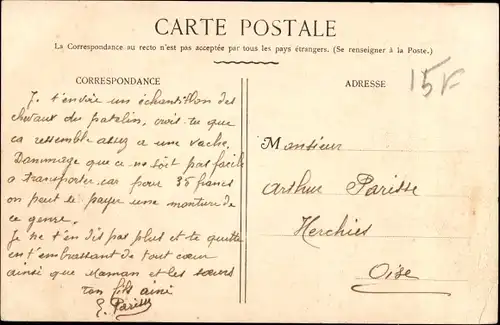 CARTE POSTALE
La Correspondance au recto n'est pas acceptée par tous les pays étrangers. (Se renseigner à la Poste.)
CORRESPONDANCE
J. t'envoie un échantillon des
chevaux du patelin, crois tu que
ca ressemble assez a une vache.
Dammage que ce ne soit pas facile
a transporter car pour 35 francs
on peut se payer une monture de
ce genre.
Je ne t'en dis pas plus et te quitte
en t'embrassant de tout cœur
ainsi que Maman et les sœurs
ton fils ainé
E. Parisse
ADRESSE
15F
Monsieur
Arthur Parisse
Herchies
Oise